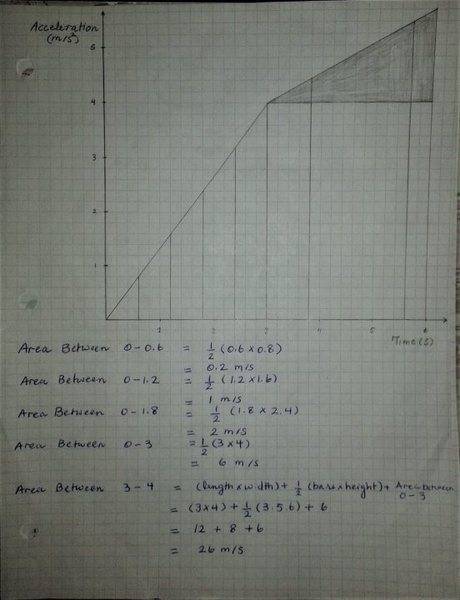 Acceleration
(m/s²)
5
4
3
2
1
1 2 3 4 5 6
Time(s)
Area Between 0-0.6 = 1/2 (0.6 x 0.8)
= 0.2 m/s
Area Between 0-1.2 = 1/2 (1.2 x 1.6)
= 1 m/s
Area Between 0-1.8 = 1/2 (1.8 x 2.4)
= 2 m/s
Area Between 0-3 = 1/2 (3 x 4)
= 6 m/s
Area Between 3-4 = (length x width) + 1/2 (base x height) + Area Between 0-3
= (3x4) + 1/2 (3.5.6) + 6
= 12 + 8 + 6
= 26 m/s